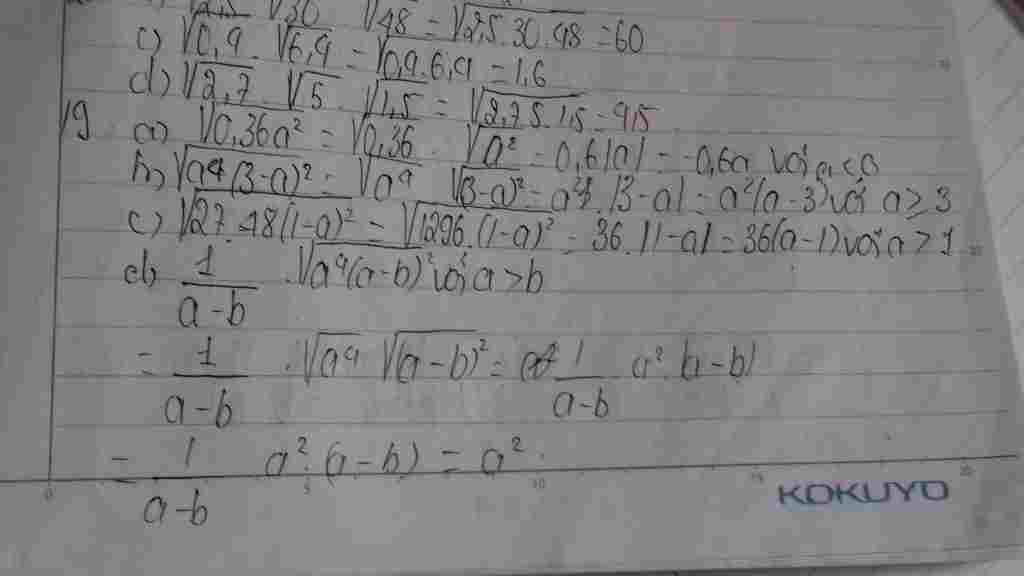 √30 √48 = √2,5.30.48 = 60
c) √0,4 . √6,4 = √0,4.6,4 = 1,6
d) √2,7 . √5 . √1,5 = √2,7.5.1,5 = 4,5
19 a) √0,36a² = √0,36 . √a² = 0,6|a| = -0,6a với a<0
b) √a⁴(3-a)² = √a⁴ √(3-a)² = a² . |3-a| = a²(a-3) với a ≥ 3
c) √27.48(1-a)² = √1296.(1-a)² = 36.|1-a| = 36(a-1) với a > 1
d) 1/(a-b) . √a⁴(a-b)² với a > b
= 1/(a-b) . √a⁴ √(a-b)² = 1/(a-b) a² |a-b|
= 1/(a-b) a².(a-b) = a².
0 5 10 15 20
KOKUYO